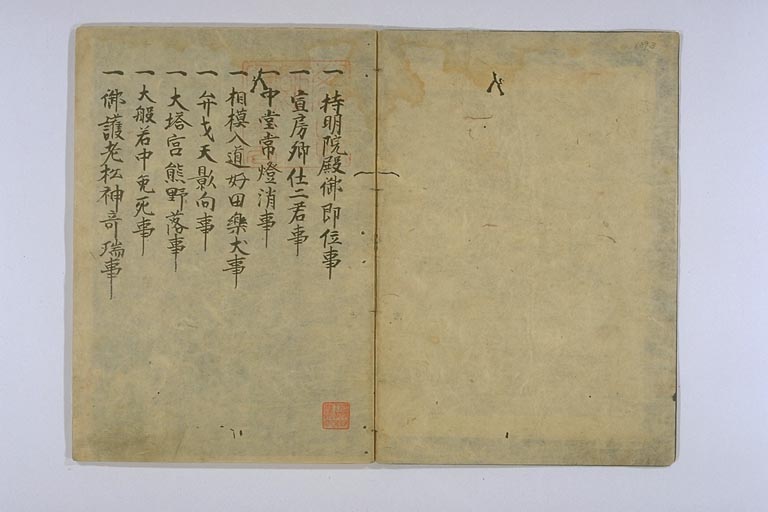 一持明院殿御即位事
一宣房卿仕二君事
一中堂常燈消事
一相模入道好田樂犬事
一弁才天影向事
一大塔宮熊野落事
一大般若中免死事
一御護老松神奇瑞事